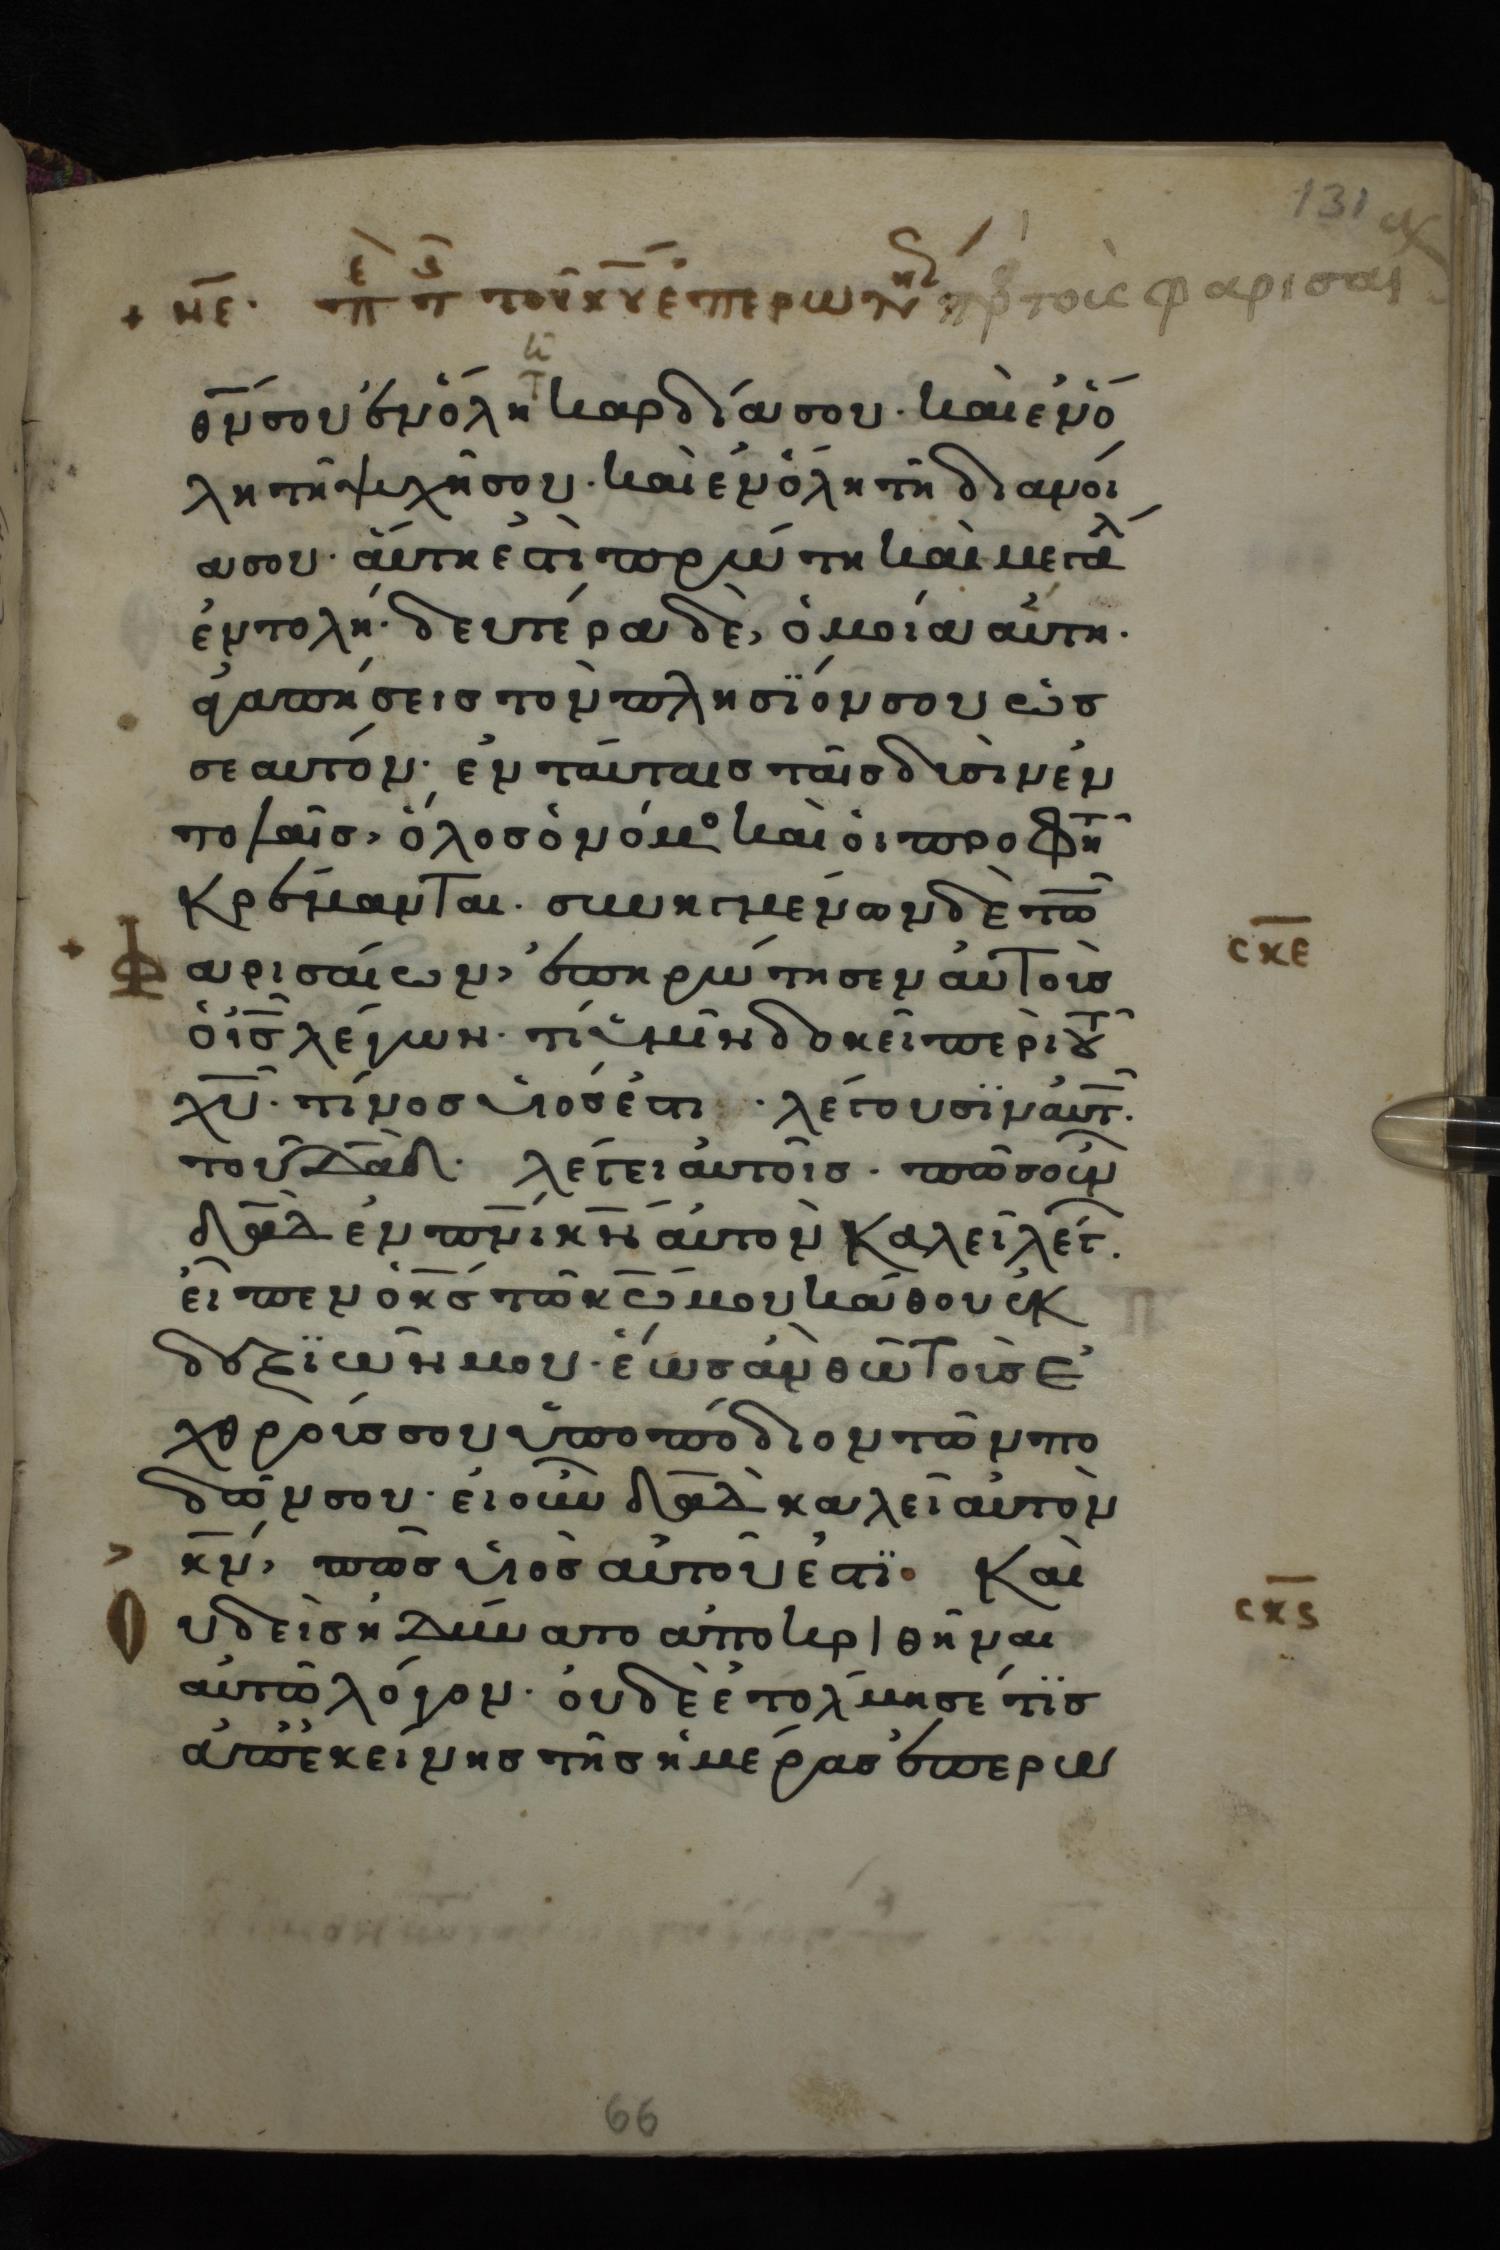 131
+ νε· π π του κυ επερωτ πρ τοὺς φαρισαι
θν σου ἐν ὅλη τ καρδία σου· καὶ ἐν ὅ
λη τῆ ψυχῆ σου· καὶ ἐν ὅλη τῆ διανοί
α σου· αὕτη ἐστὶ πρώτη καὶ μεγάλ
ἐντολή· δευτέρα δὲ, ὁμοία αὐτη·
ἀγαπήσεισ τὸν πλησΐον σου ὡσ
σεαυτόν· ἐν ταύταισ ταῖσ δυσὶν ἐν
τολαῖσ, ὅλοσ ὁ νόμο καὶ ὁι προφῆτ
κρέμανται· συνηγμένων δὲ τῶ
+ Φαρισαίων, ἐπηρώτησεν αὐτοὺσ
ὁ ισ λέγων· τί ὑμῖν δοκεῖ περὶ τȣ
χυ· τίνοσ υἱόσ ἐστι· λέγουσϊν αὐτ·
τοῦ δαδ· λέγει αὐτοῖσ· πῶσ οὖν
δαδ ἐν πνι κν αὐτὸν καλεῖ λέγ·
εἶπεν ὁ κσ τῶ κω μου κάθου ἐκ
δεξϊῶν μου· ἕωσ ἀν θῶ τοὺσ ἐ
χθρούσ σου ὑποπόδιον τῶν πο
δῶν σου· εἰ οὖν δαδ καλεῖ αὐτὸν
κν, πῶσ υἱὸσ αὐτοῦ ἐστϊ· Καὶ
Ουδεὶσ ἠδύνατο ἀποκριθῆναι
αὐτῶ λόγον· οὐδὲ ἐτόλμησέ τϊσ
ἀπ ἐκείνησ τῆσ ἡμέρασ ἐπερω
σκε
σκϛ
66